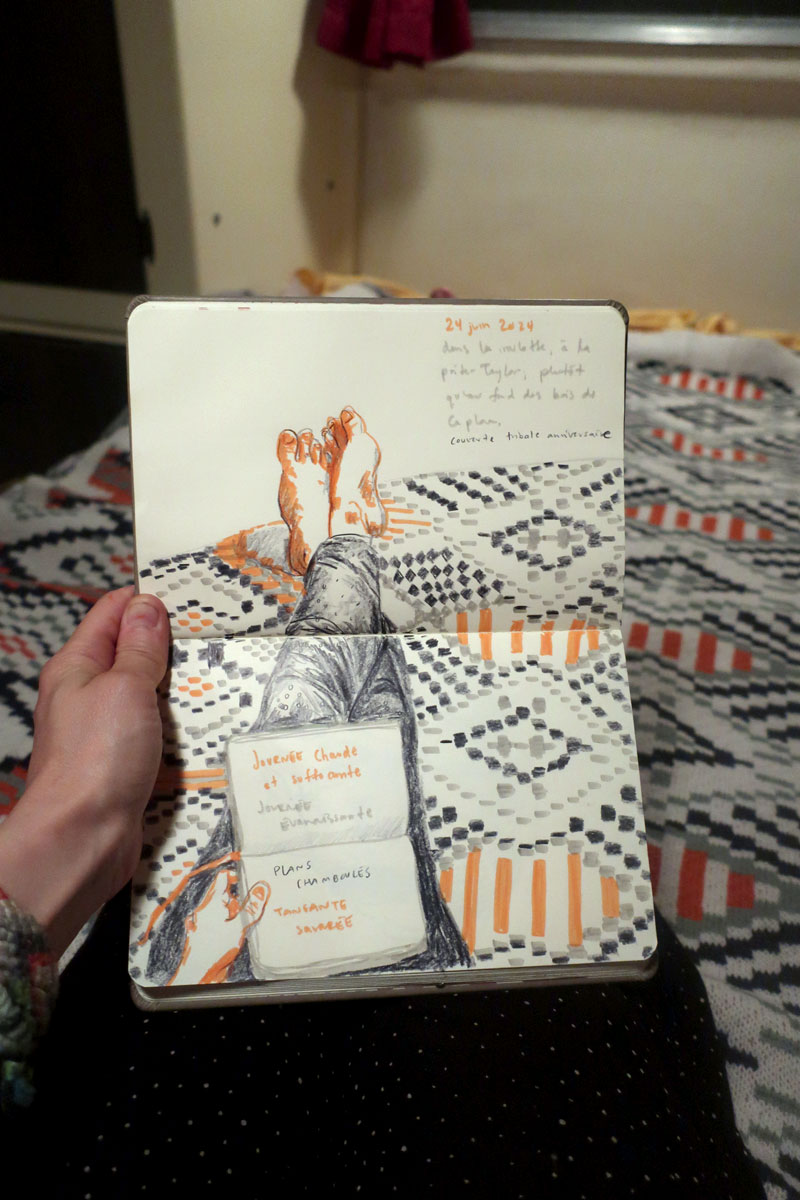 24 juin 2024
dans la roulotte, à la
Taylor, plutôt
qu'au fond des bois de
Caplan.
couverte tribale anniversaire
JOURNÉE Chaude
et suffocante
JOURNÉE
ÉVANOUISSANTE
PLANS
CHAMBOULÉS
TANGANTE
SOIRÉE